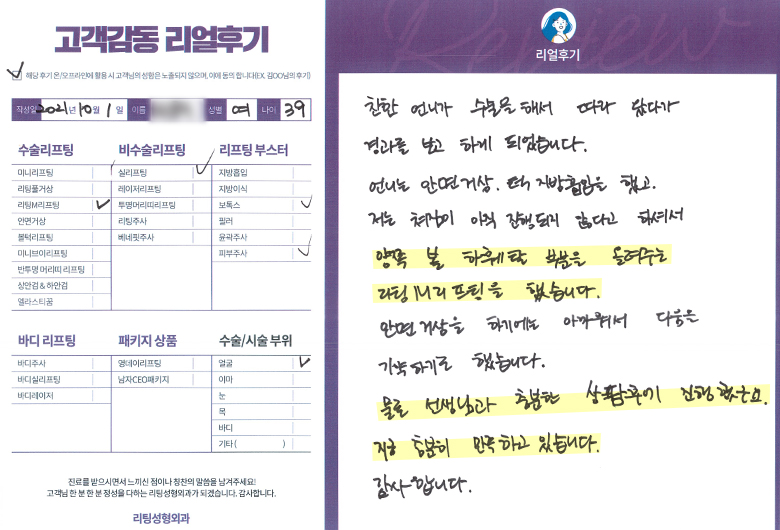 고객감동 리얼후기
해당 후기 온/오프라인에 활용 시 고객님의 성함은 노출되지 않으며, 이에 동의 합니다(EX. 김OO님의 후기)
작성일 2021년 10월 1일 이름 성별 여 나이 39
수술리프팅
미니리프팅
리팅풀거상
리팅M리프팅
안면거상
볼턱리프팅
미니브이리프팅
반투명 머리띠 리프팅
상안검 & 하안검
엘라스티꿈
비수술리프팅
실리프팅
레이저리프팅
투명머리띠리프팅
리팅주사
베네핏주사
리프팅 부스터
지방흡입
지방이식
보톡스
필러
윤곽주사
피부주사
바디 리프팅
바디주사
바디실리프팅
바디레이저
패키지 상품
영데이리프팅
남자CEO패키지
수술/시술 부위
얼굴
이마
눈
목
바디
기타 ( )
진료를 받으시면서 느끼신 점이나 칭찬의 말씀을 남겨주세요!
고객님 한 분 한 분 정성을 다하는 리팅성형외과가 되겠습니다. 감사합니다.
리팅성형외과
Review
리얼후기
친한 언니가 수술을 해서 따라 왔다가
경과를 보고 하게 되었습니다.
언니는 안면거상, 턱 지방흡입을 했고,
저는 처짐이 아직 진행되지 않다고 하셔서
양쪽 볼 하휀탁 부분을 올려주는
리팅 미니 리프팅을 했습니다.
안면거상을 하기에는 아까워서 다음을
기약하기로 했습니다.
물론 선생님과 충분한 상담후에 진행했구요.
지금 충분히 만족하고 있습니다.
감사합니다.